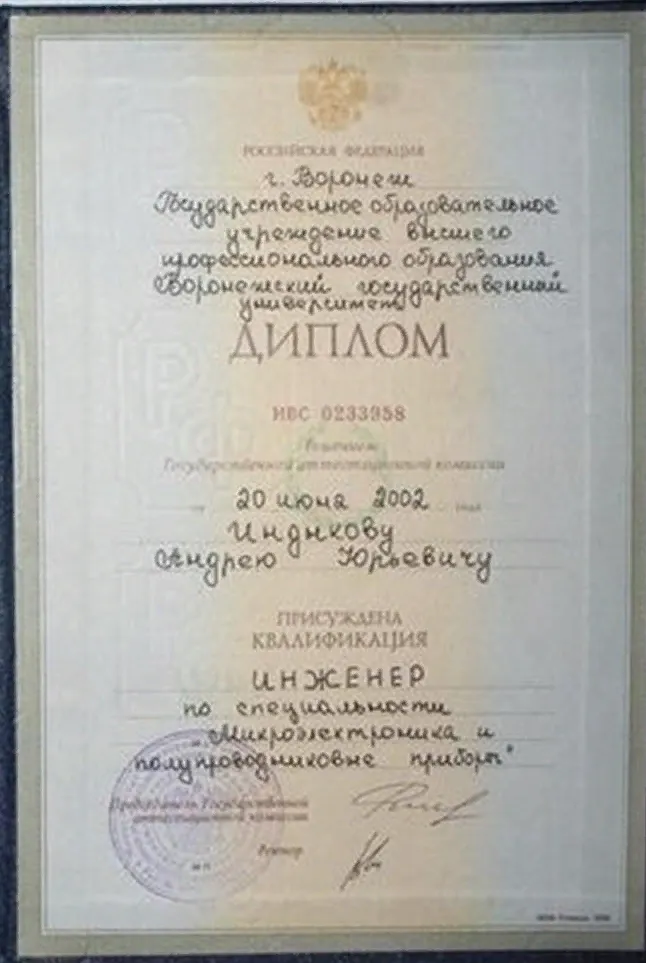 РОССИЙСКАЯ ФЕДЕРАЦИЯ
г. Воронеж
Государственное образовательное
учреждение высшего
профессионального образования
Воронежский государственный
университет
ДИПЛОМ
ИВС 0233958
Решением
Государственной аттестационной комиссии
от 20 июня 2002 года
Индыкову
Андрею Юрьевичу
ПРИСУЖДЕНА
КВАЛИФИКАЦИЯ
ИНЖЕНЕР
по специальности
„Микроэлектроника и
полупроводниковые приборы"
Председатель Государственной
аттестационной комиссии
Ректор
М.П.